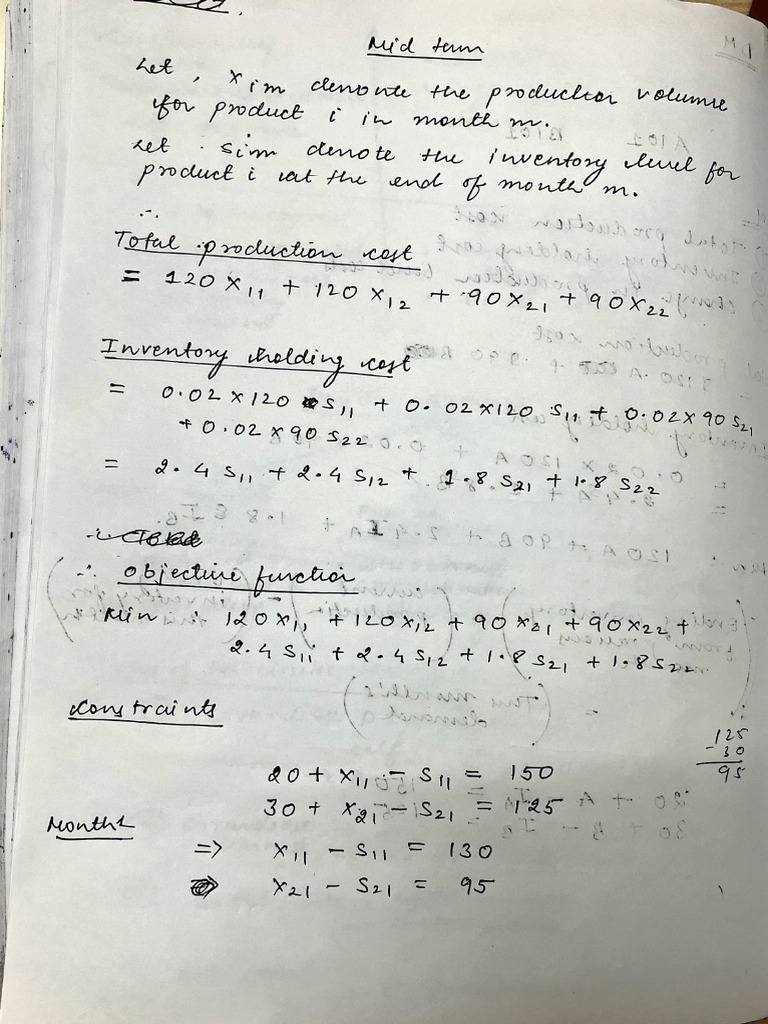 Mid term
Let, x im denote the production volume
for product i in month m.
Let sim denote the inventory level for
product i at the end of month m.
∴
Total production cost
= 120 x₁₁ + 120 x₁₂ + 90x₂₁ + 90x₂₂
Inventory holding cost
= 0.02 x 120 s₁₁ + 0.02x120 s₁₁ + 0.02x90 s₂₁
+ 0.02 x 90 s₂₂
= 2.4 s₁₁ + 2.4 s₁₂ + 1.8 s₂₁ + 1.8 s₂₂
∴ objective function
Min : 120x₁₁ + 120x₁₂ + 90x₂₁ + 90x₂₂ +
2.4 s₁₁ + 2.4 s₁₂ + 1.8 s₂₁ + 1.8 s₂₂
Constraints
125
-30
95
20 + x₁₁ - s₁₁ = 150
30 + x₂₁ - s₂₁ = 125
Month1
=> x₁₁ - s₁₁ = 130
x₂₁ - s₂₁ = 95